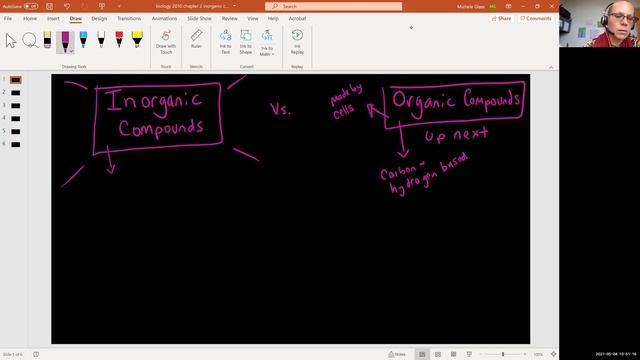 AutoSave Off
biology 2010 chapter 2 inorganic c...
Search
Michele Glass
File Home Insert Draw Design Transitions Animations Slide Show Review View Help Acrobat
Share Comments
Draw with Touch
Ink to Text
Ink to Shape
Ink to Math
Ink Replay
Drawing Tools
Touch
Convert
Replay
1
2
3
4
5
6
Inorganic
Compounds
Vs.
made by
cells
Organic Compounds
up next
Carbon -
hydrogen based
Slide 1 of 6
Notes
100%
2021-05-04 10:51:16